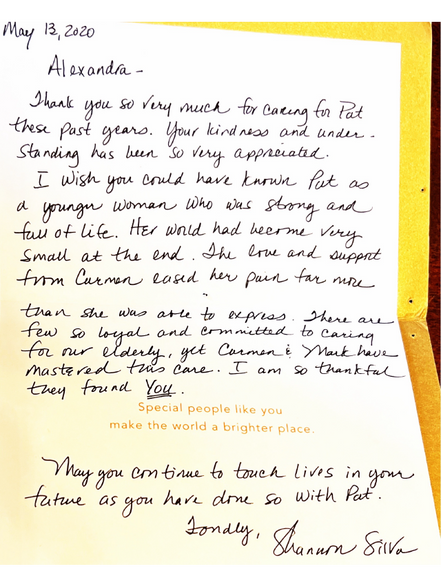 May 13, 2020
Alexandra -
Thank you so very much for caring for Pat
these past years. Your kindness and under-
standing has been so very appreciated.
I wish you could have known Pat as
a younger woman who was strong and
full of life. Her world had become very
small at the end. The love and support
from Carmen eased her pain far more
than she was able to express. There are
few so loyal and committed to caring
for our elderly, yet Carmen & Mark have
mastered this care. I am so thankful
they found You.
Special people like you
make the world a brighter place.
May you continue to touch lives in your
future as you have done so with Pat.
Fondly,
Shannon Silva